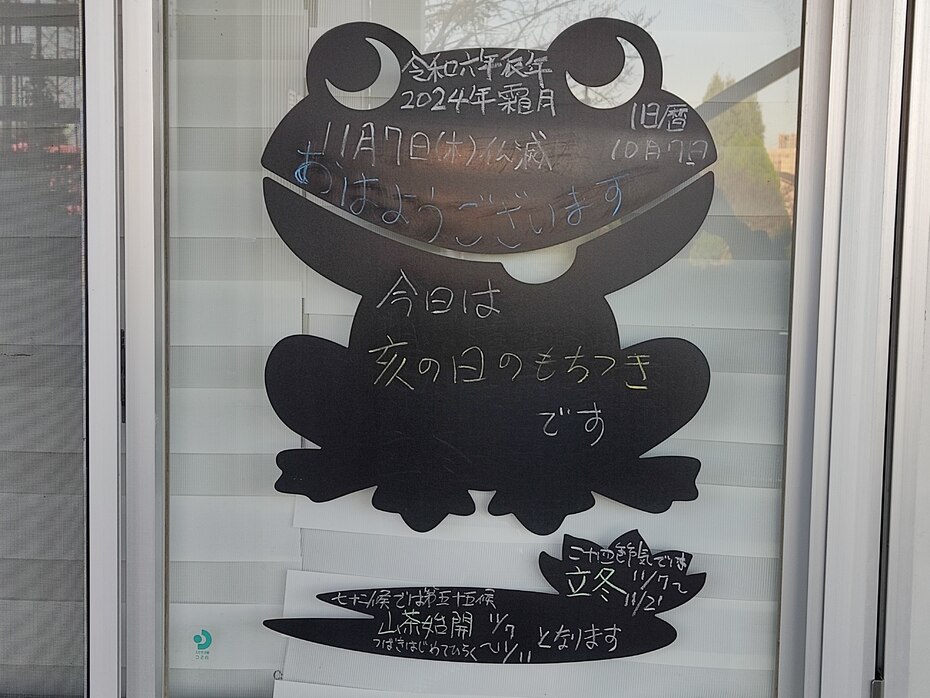 令和六年辰年
2024年霜月
旧暦
11月7日(木)仏滅
10月7日
おはようございます
今日は
亥の日のもちつき
です
二十四節気では
立冬 11/7~
11/21
七十二候では第五十五候
山茶始開 11/7
つばきはじめてひらく~11/11
となります